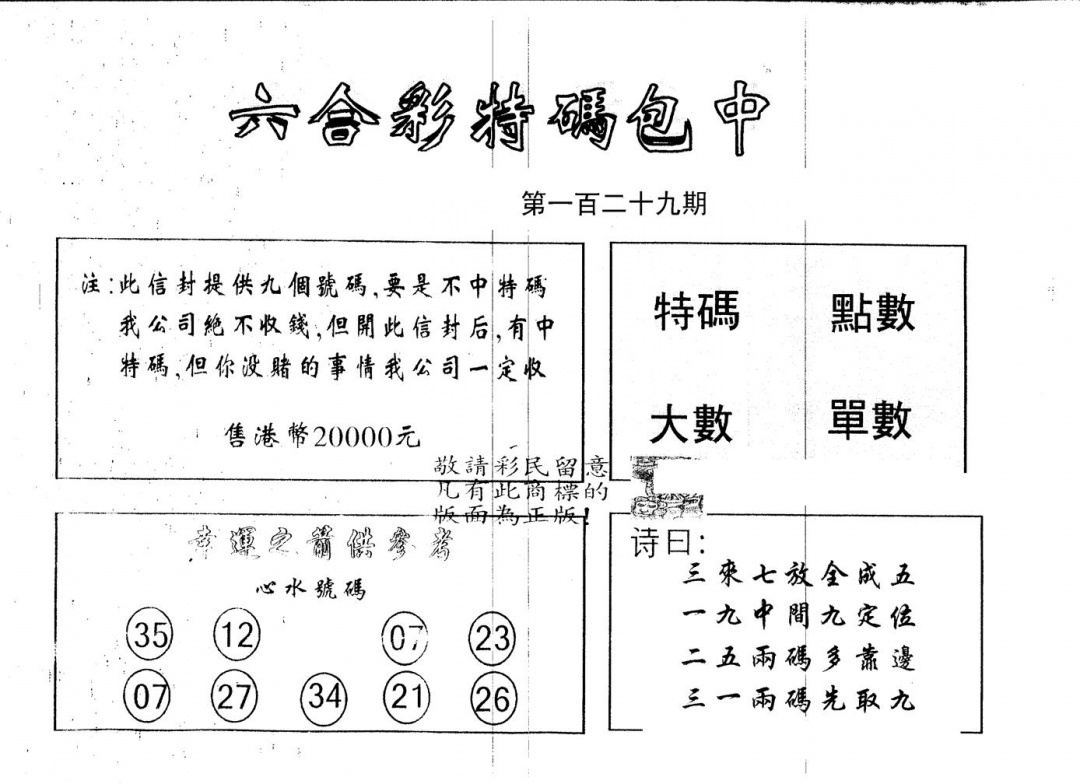 六合彩特碼包中
第一百二十九期
注:此信封提供九個號碼,要是不中特碼
我公司絶不收錢,但開此信封后,有中
特碼,但你没賭的事情我公司一定收
售港幣20000元
特碼 點數
大數 單數
敬請彩民留意
凡有此商標的
版面為正版!
幸運之箭供參考
心水號碼
35 12 07 23
07 27 34 21 26
诗曰:
三來七放全成五
一九中間九定位
二五兩碼多靠邊
三一兩碼先取九